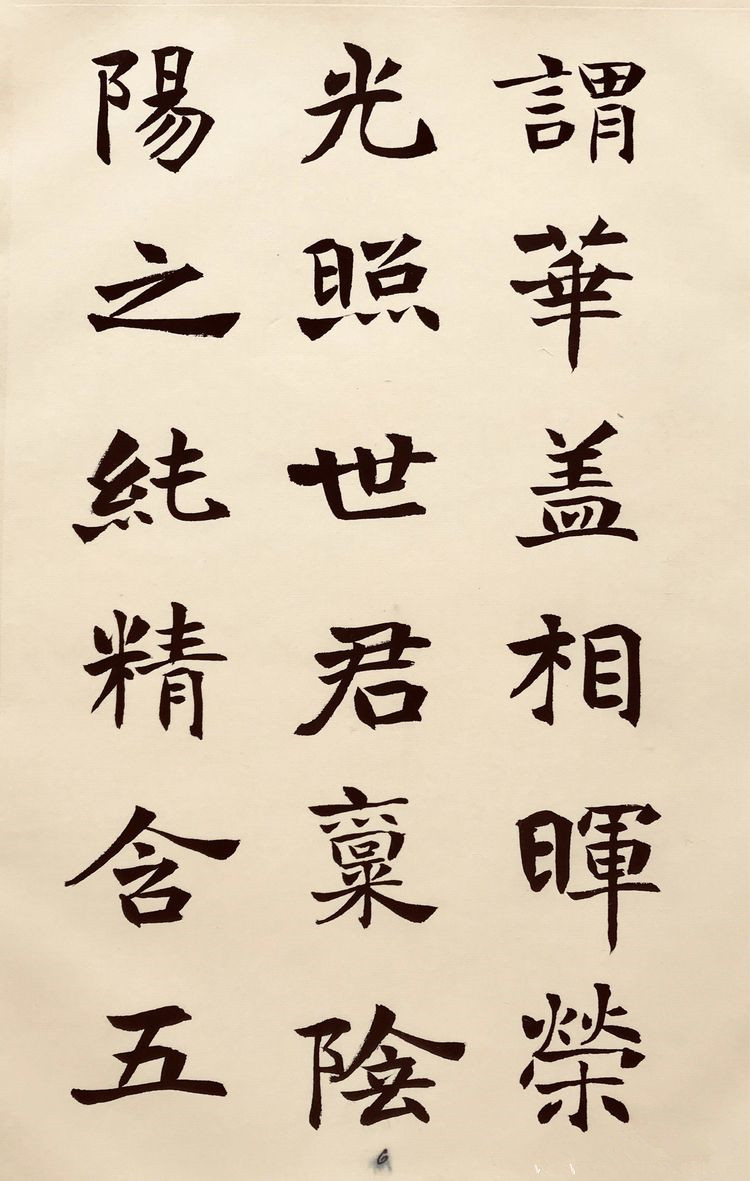 謂華盖相暉榮
光照世君稟陰
陽之純精含五
6